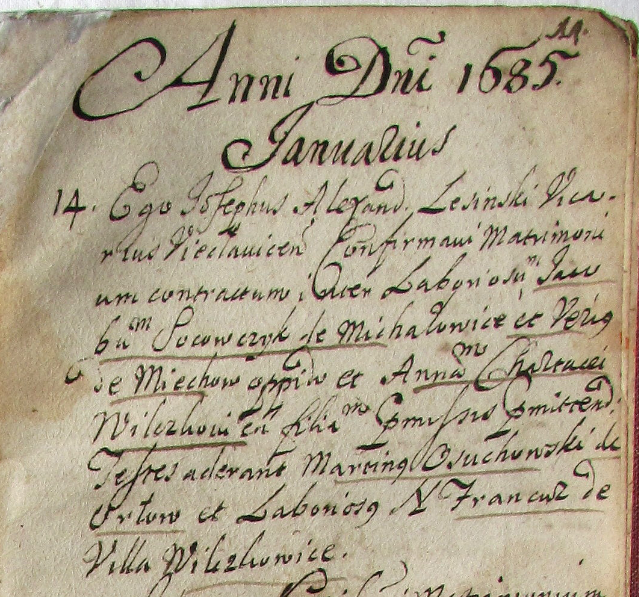 11.
Anni Dñi 1685.
Januarius
14. Ego Josephus Alexand. Lesinski Vica-
rius Vieclavicen Confirmavi Matrimoni
um contractum inter Laboriosũ Jaco
bum Socowczyk de Michałowice et
de Miechow oppido et Annam
Wilczkovicen filiam pmissis pmittend:
Testes aderant Marting Osuchowski de
Orłow et Laboriosg N Francuz de
Villa Wilczkowice.
Matrimonium